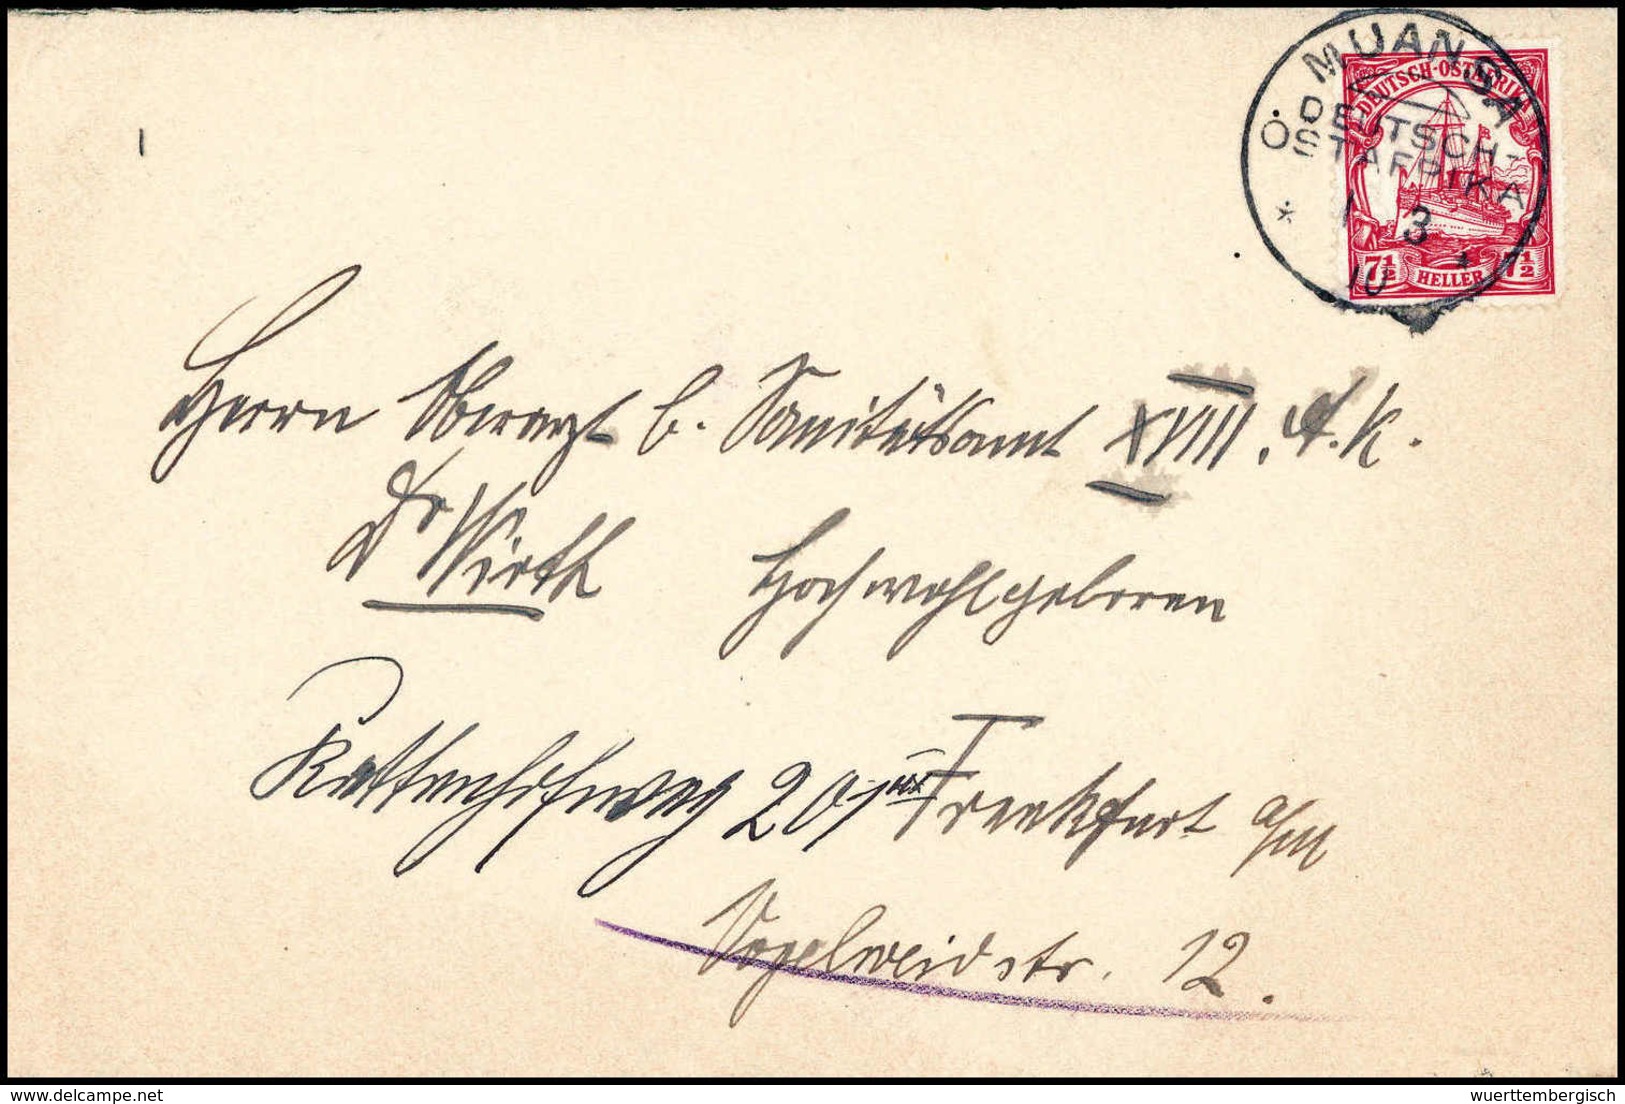 MUANSA
DEUTSCH-
OSTAFRIKA
1 3
10
DEUTSCH-OSTAFRIKA
7½ HELLER 7½
Herrn Oberarzt b. Sanitätsamt XVIII. A. K.
Dr Wirth Hochwohlgeboren
Kettenhofweg 201 Frankfurt a/M
Vogelweidstr. 12.
© delcampe.net
wuerttembergisch